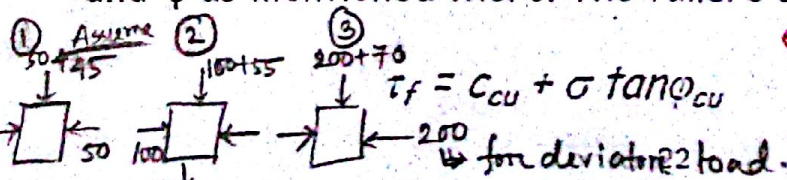 ① Assume ② ③
50+45 100+55 200+70
τf = Ccu + σ tanφcu
50 100 200
↳ for deviatoric load.